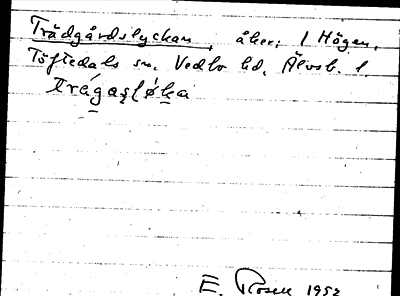 Trädgårdslyckan, åker; 1 Högen,
Töftedals sn. Vedbo hd. Älvsb. l.
E. Rosell 1952